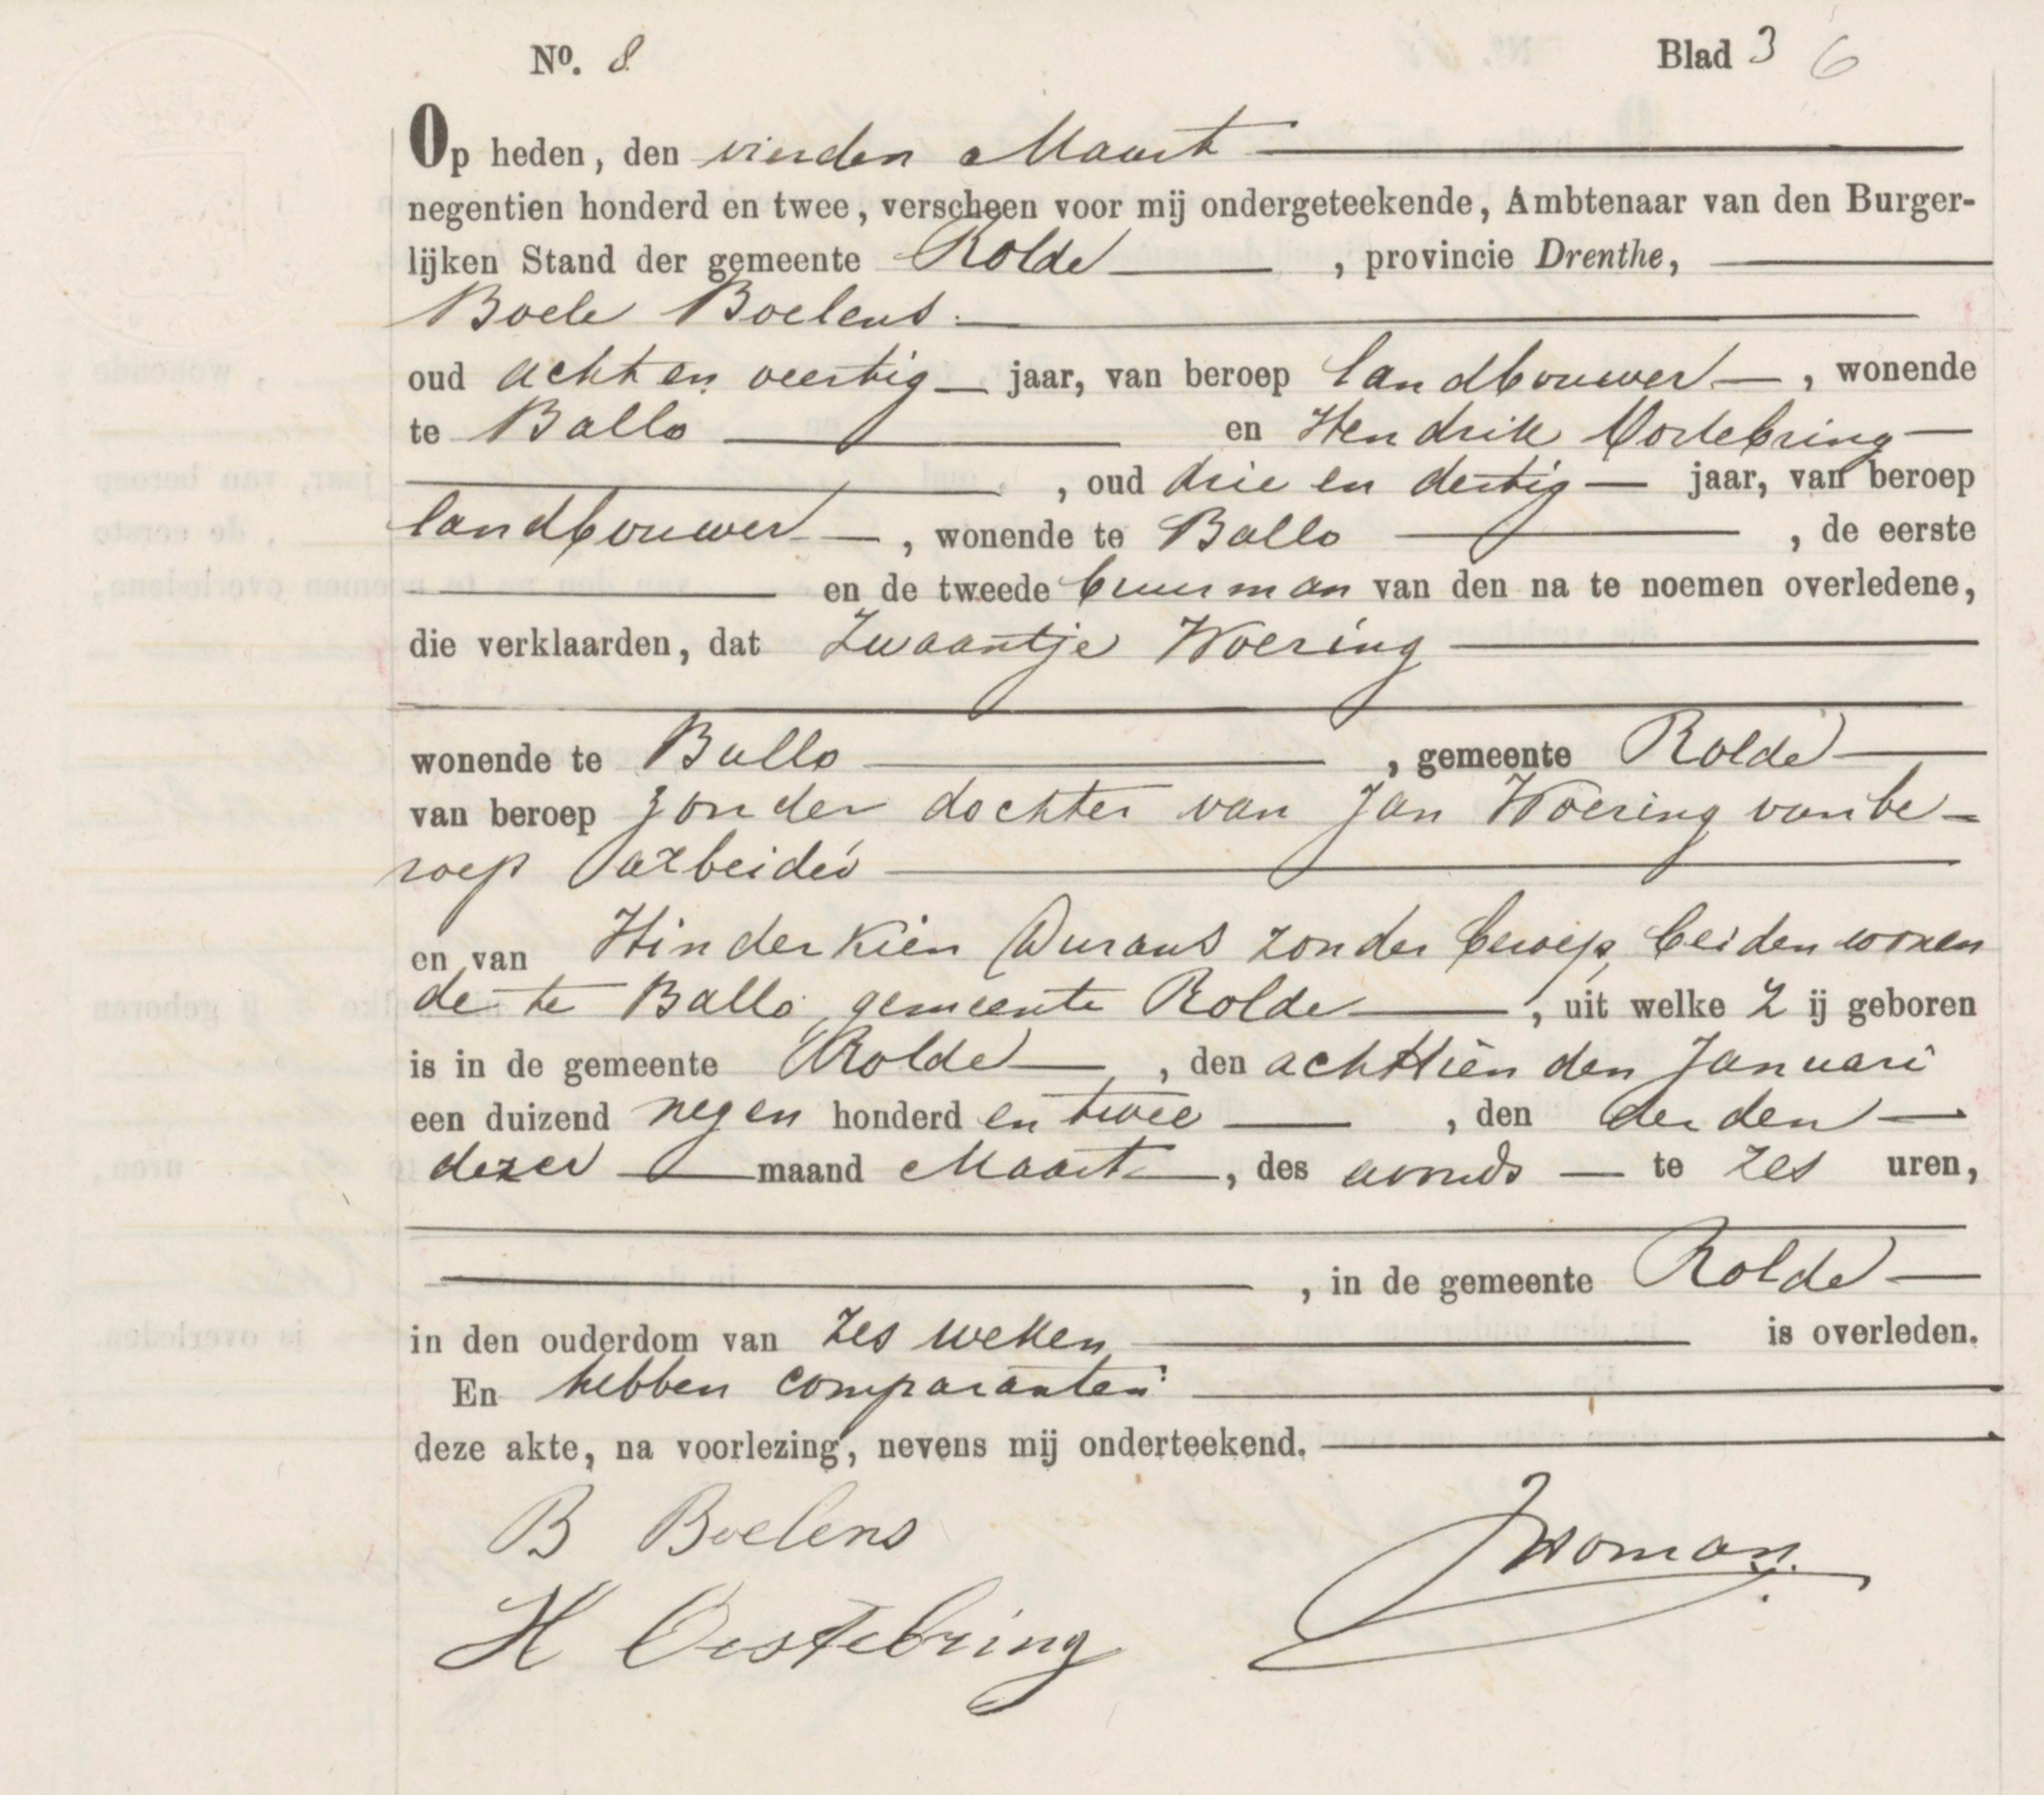 No. 8 Blad 3 6
Op heden, den vierden Maart
negentien honderd en twee, verscheen voor mij ondergeteekende, Ambtenaar van den Burger-
lijken Stand der gemeente Rolde, provincie Drenthe,
Boele Boelens
oud acht en veertig jaar, van beroep landbouwer, wonende
te Ballo en Hendrik Oostebring
, oud drie en dertig jaar, van beroep
landbouwer, wonende te Ballo, de eerste
en de tweede buurman van den na te noemen overledene,
die verklaarden, dat Zwaantje Woering
wonende te Ballo, gemeente Rolde
van beroep zonder dochter van Jan Woering van be-
roep arbeider
en van Hinderkien Durans zonder beroep, beiden wonen
de te Ballo, gemeente Rolde, uit welke Zij geboren
is in de gemeente Rolde, den achttienden Januari
een duizend negen honderd en twee, den derden
dezer maand Maart, des avonds te zes uren,
, in de gemeente Rolde
in den ouderdom van zes weken is overleden.
En hebben comparanten
deze akte, na voorlezing, nevens mij onderteekend.
B Boelens
H Oostebring